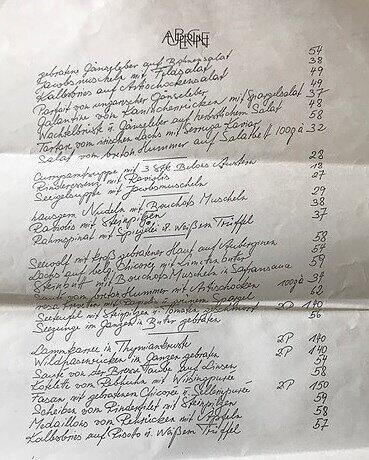 gebratene Gänseleber auf Bohnensalat 54
Jacobsmuscheln mit Feldsalat 38
Kalbsbries auf Artischockensalat 49
Parfait von ungarischer Gänseleber 49
Galantine vom Kaninchenrücken mit Spargelsalat 37
Wachtelbrüste u Gänseleber auf herbstlichem Salat 48
Tartar vom irischen Lachs mit Sevruga Kaviar 58
Salat vom breton Hummer auf Salatbett 100g à 32
mit 3 Stk Belons Austern 28
mit Raviolis 18
Seezungensuppe mit Jacobsmuscheln 27
hausgem Nudeln mit Bouchot Muscheln 29
Raviolis mit Steinpilzen 38
Rahmspinat mit Spiegelei u. Weißem Trüffel 37
Seewolf mit kroß gebratener Haut auf Auberginen 58
Lachs auf belg. Chicoree mit Limonenbutter 57
Steinbutt mit Bouchot Muscheln u Safransauce 59
Sauté vom breton Hummer mit Artischocken 100g à 39
mit u grünem Spargel 62
Seeteufel mit Steinpilzen u Tomaten 2P 140
Seezunge im Ganzen in Butter gebraten 56
Dammkarree in Thymiankruste 2P 140
Wildhasenrücken im Ganzen gebraten 2P 140
Sauté von der Bresse Taube auf Linsen 54
Kotelette vom Rebhuhn mit Wirsingpüree 58
Fasan mit gebratenem Chicoree u Selleriepüree 2P 150
Scheiben vom Rinderfilet mit Steinpilzen 59
Medaillons vom Rehrücken mit Äpfeln 58
Kalbsbries auf Risotto u. Weißem Trüffel 57